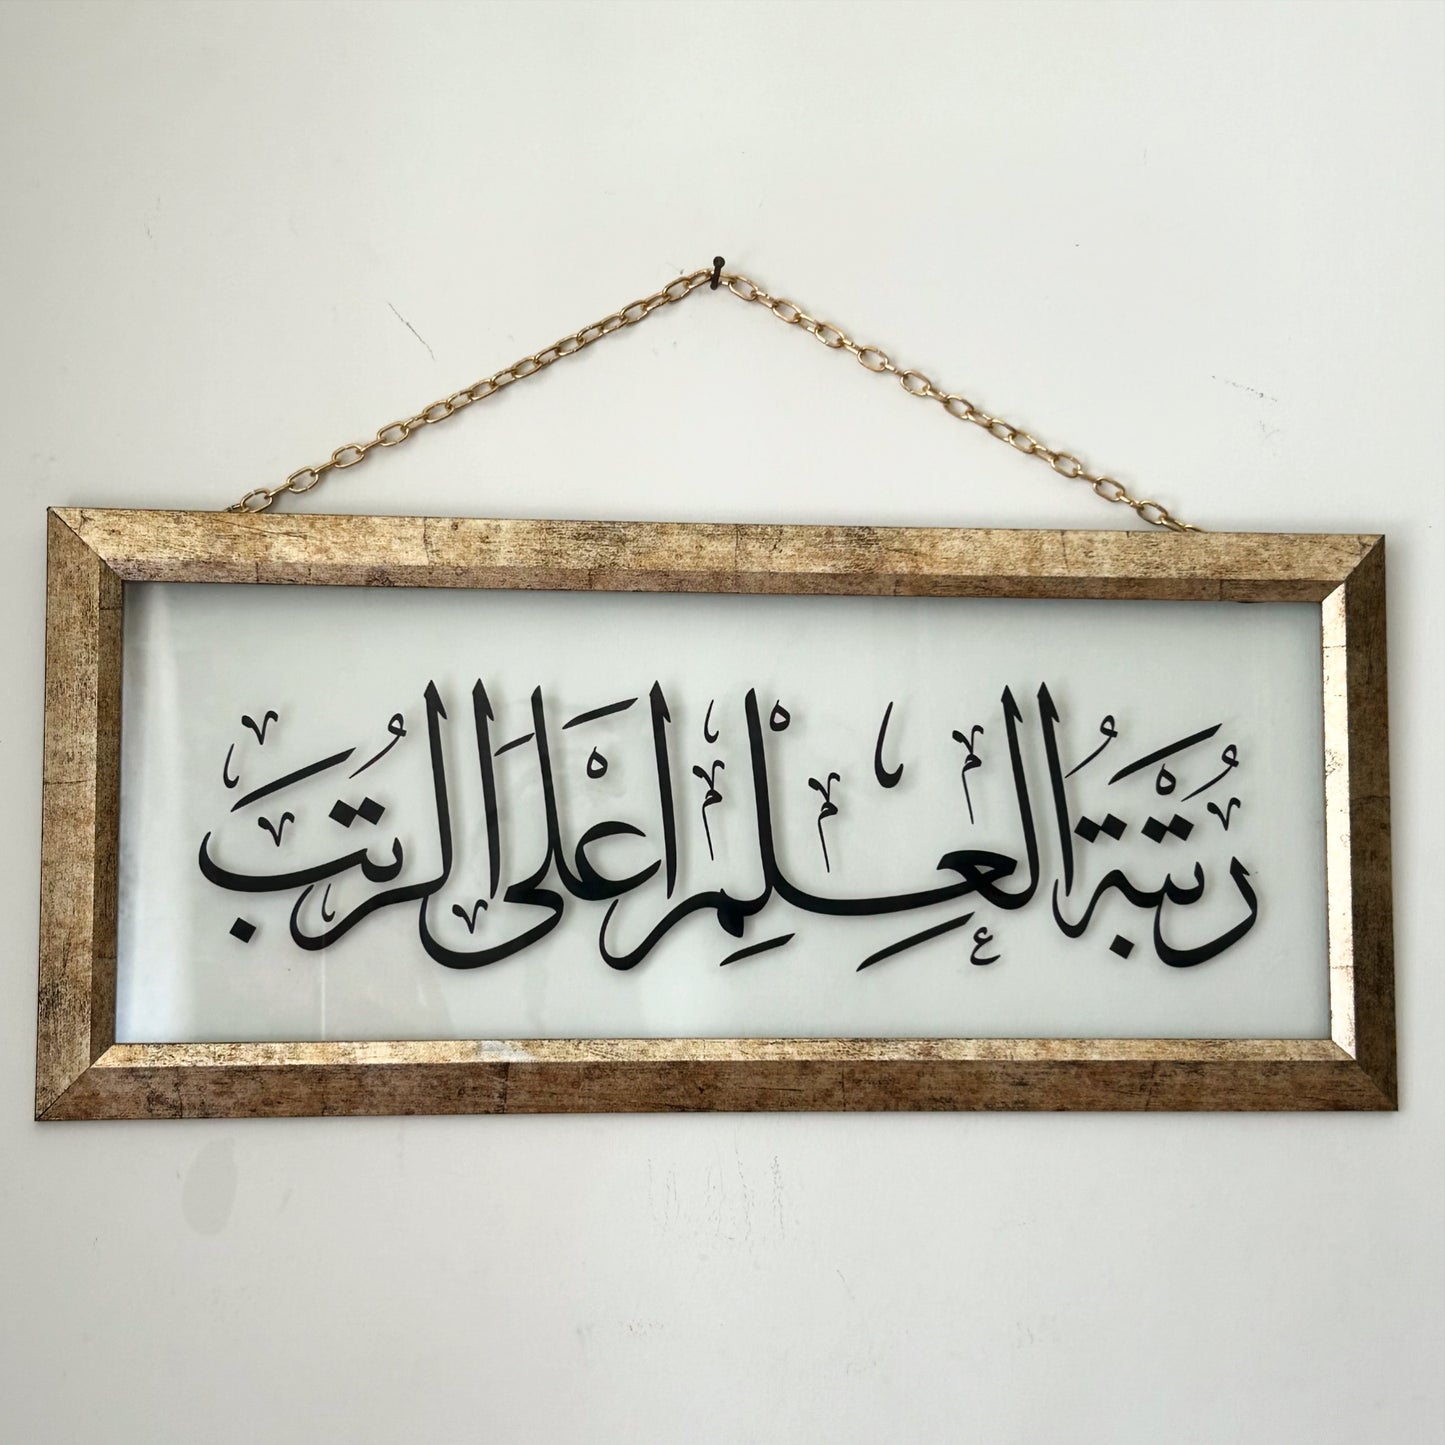 رُتْبَةُ الْعِلْمِ أَعْلَى الرُّتَبِ